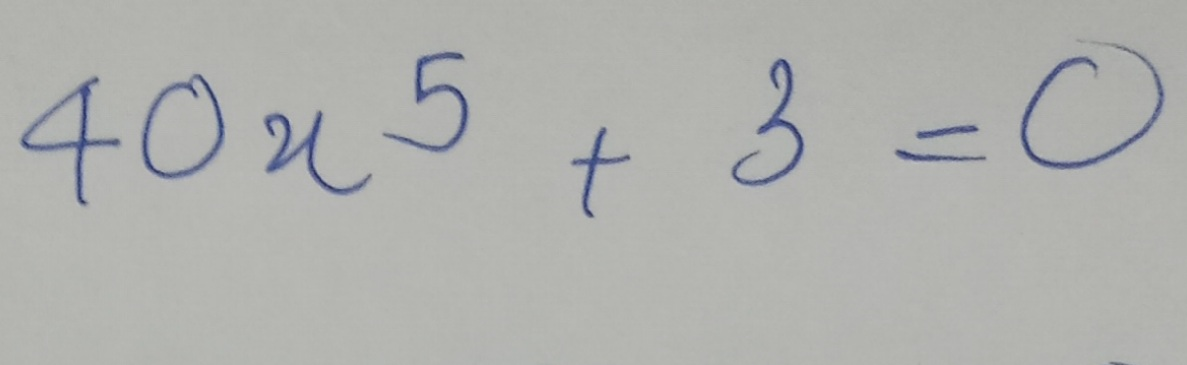 40x⁵ + 3 = 0